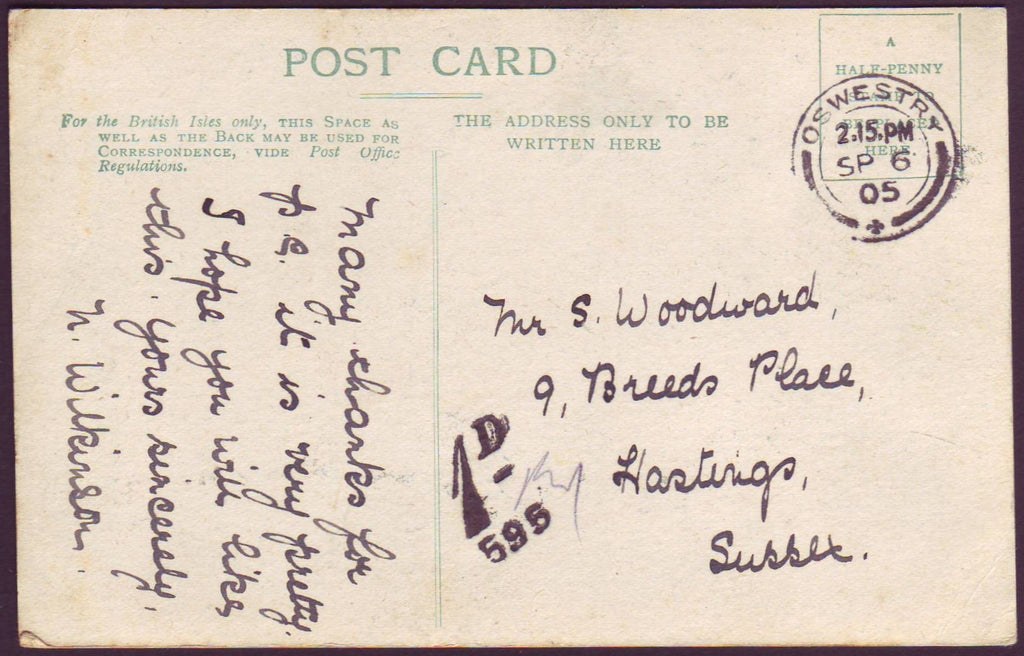 POST CARD
For the British Isles only, THIS SPACE AS
WELL AS THE BACK MAY BE USED FOR
CORRESPONDENCE, VIDE Post Office
Regulations.
THE ADDRESS ONLY TO BE
WRITTEN HERE
A
HALF-PENNY
HERE.
OSWESTRY
2.15.PM
SP 6
05
Many thanks for
p c. it is very pretty.
I hope you will like
this. yours sincerely.
N. Wilkinson.
Mr S. Woodward,
9, Breeds Place,
Hastings,
Sussex.
1D.
595